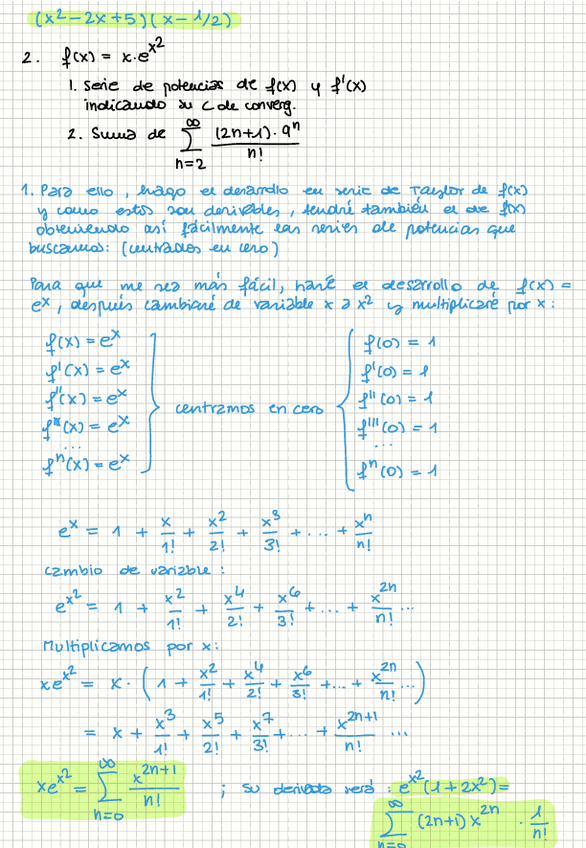 (x² - 2x + 5)(x - 1/2)
2. f(x) = x·e^x²
1. Serie de potencias de f(x) y f'(x)
indicando su C de converg.
2. Suma de ∑_{n=2}^{∞} (2n+1)·9ⁿ / n!
1. Para ello, hago el desarrollo en serie de Taylor de f(x)
y como estos son derivables, tendré también el de f(x)
obteniendo así fácilmente las series de potencias que
buscamos: (centrados en cero)
Para que me sea más fácil, haré el desarrollo de f(x) =
e^x, después cambiaré de variable x a x² y multiplicaré por x:
f(x) = e^x f(0) = 1
f'(x) = e^x f'(0) = 1
f''(x) = e^x f''(0) = 1
f'''(x) = e^x centramos en cero f'''(0) = 1
... ...
fⁿ(x) = e^x fⁿ(0) = 1
e^x = 1 + x/1! + x²/2! + x³/3! + ... + xⁿ/n!
cambio de variable:
e^x² = 1 + x²/1! + x⁴/2! + x⁶/3! + ... + x^2n/n! ...
Multiplicamos por x:
xe^x² = x · (1 + x²/1! + x⁴/2! + x⁶/3! + ... + x^2n/n! ...)
= x + x³/1! + x⁵/2! + x⁷/3! + ... + x^{2n+1}/n! ...
xe^x² = ∑_{n=0}^{∞} x^{2n+1}/n! ; su derivada será: e^x²(1 + 2x²) =
∑_{n=0}^{∞} (2n+1) x^2n · 1/n!